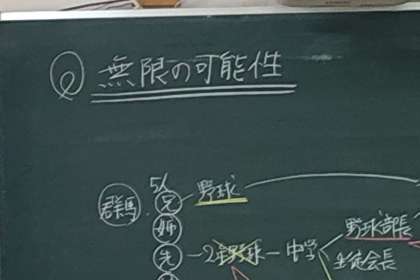 無限の可能性
群馬
5人
兄 野球
姉
野球 中学 野球部長
生徒会長